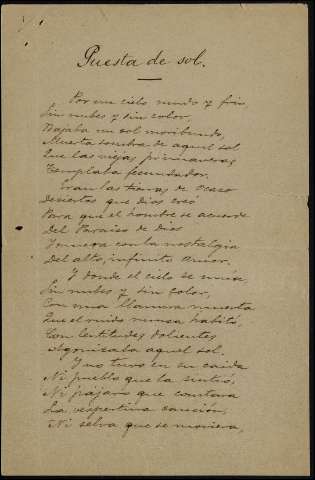 Puesta de sol.
Por un cielo mudo y frio,
Sin nubes y sin color,
Bajaba un sol moribundo,
Muerta sombra de aquel sol
Que las viejas primaveras
Templaba fecundador.
Eran las tierras de Ocaso
Desiertos que dios creó
Para que el hombre se acuerde
Del Paraiso de Dios
Y muera con la nostalgia
Del alto, infinito Amor.
Y donde el cielo se unia,
Sin nubes y sin color,
Con una llanura muerta
Que el ruido nunca habitó,
Con lentitudes dolientes
Agonizaba aquel sol.
Y no tuvo en su caida
Ni pueblo que la sintió,
Ni pájaro que cantara
La vespertina canción,
Ni selva que se moviera,